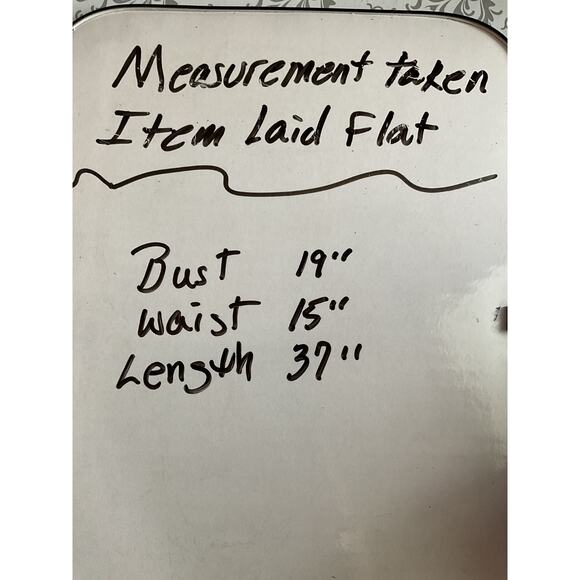 Measurement taken
Item Laid Flat
Bust 19"
Waist 15"
Length 37"